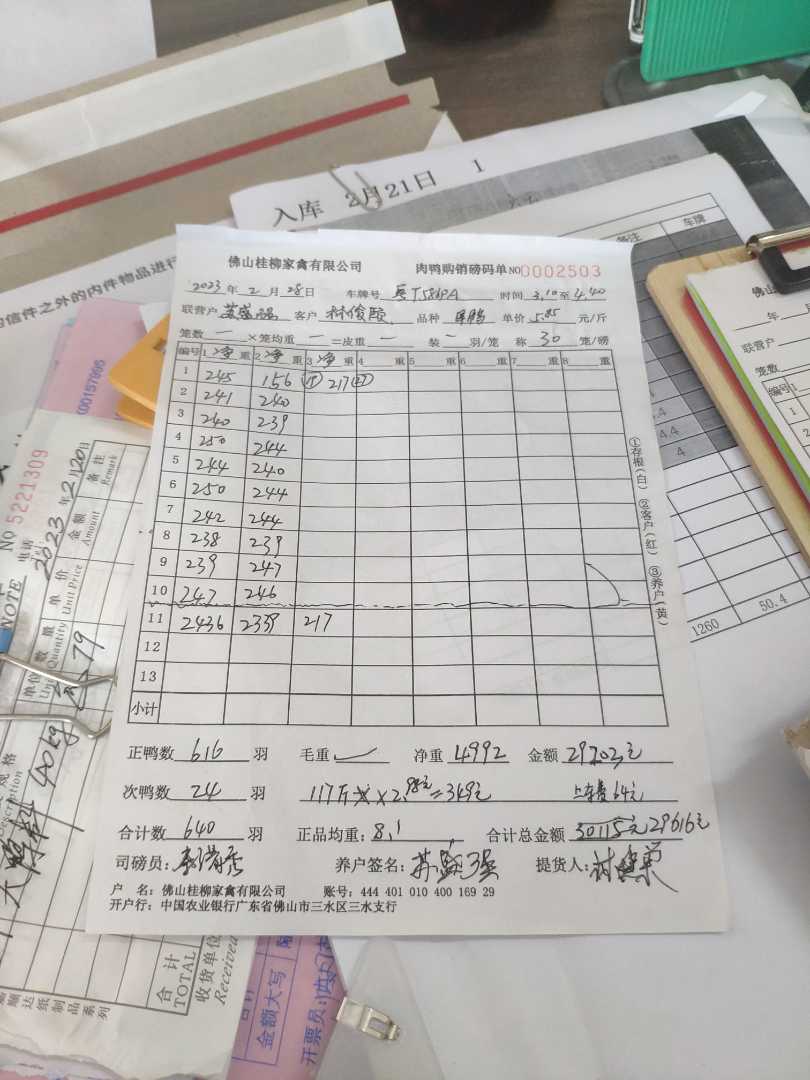 入库 2月21日 1
的信件之外的内件物品进行
备注 车牌
佛山桂柳家禽有限公司 肉鸭购销磅码单 NO 0002503
2023年2月28日 车牌号 时间 3.10至4.40
联营户 客户 林俊颐 品种 单价 5.85 元/斤
笼数 一 ×笼均重 一 =皮重 一 装 一 羽/笼 称 30 笼/磅
编号 1 净 重 2 净 重 3 净 重 4 重 5 重 6 重 7 重 8 重
1 245 156 217
2 241 240
3 240 239
4 250 244
5 244 240
6 250 244
7 242 244
8 238 239
9 239 247
10 247 246
11 2436 2339 217
12
13
小计
①存根(白) ②客户(红) ③养户(黄)
正鸭数 616 羽 毛重 净重 4992 金额 29203元
次鸭数 24 羽 117斤 × 2.98元=349元 上车费64元
合计数 640 羽 正品均重: 8.1 合计总金额 30115元 29616元
司磅员: 养户签名: 苏盛强 提货人:
户 名: 佛山桂柳家禽有限公司 账号: 444 401 010 400 169 29
开户行: 中国农业银行广东省佛山市三水区三水支行
NO 5221309
2023年2月20日
备注 Remark
金额 Amount
单价 Unit Price
数量 Quantity
单位
规格
40kg
大鸭料
79
NOTE
合计 TOTAL
收货单位 Received
X00157995
金额大写
开票员:
1260
50.4
佛山
年
联营户
笼数
编号 1
1
2